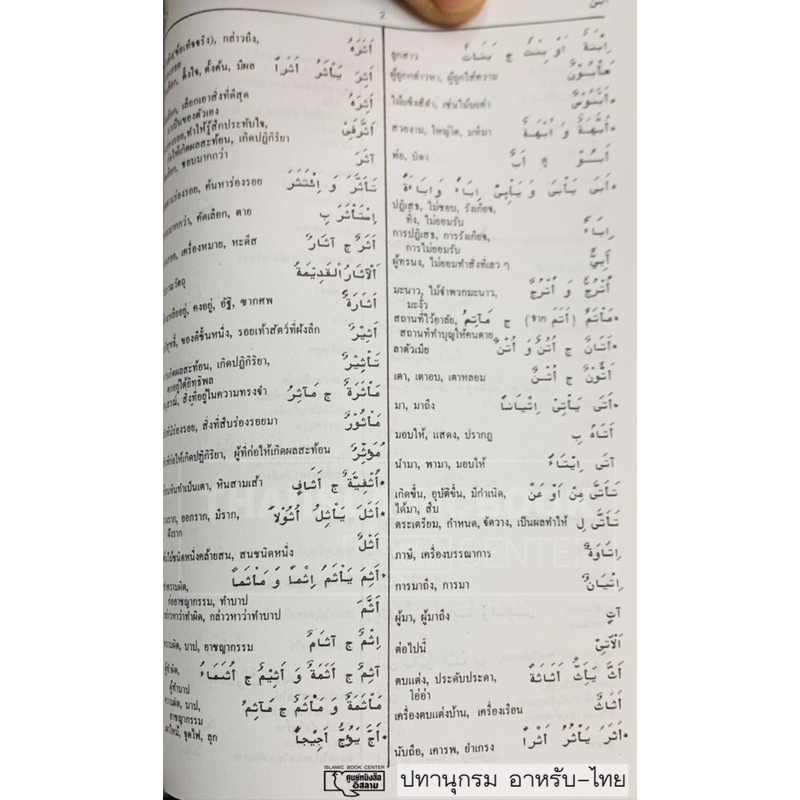 2
اِبْنَةٌ اَوْ بِنْتٌ ج بَنَاتٌ ลูกสาว
مَأْبُوْنٌ ผู้ถูกกล่าวหา, ผู้ถูกใส่ความ
اَبَنُوْسٌ ไม้แข็งสีดำ, เช่นไม้มะดำ
اُبَّهَةٌ وَ اُبْهَةٌ สวยงาม, ใหญ่โต, มหึมา
พ่อ, บิดา
اَبَى يَأْبَى وَ يَأْبِىْ اِبَاءً وَ اِبَاءَةً
ปฏิเสธ, ไม่ชอบ, รังเกียจ,
ทิ้ง, ไม่ยอมรับ
اِبَاءٌ การปฏิเสธ, การรังเกียจ,
การไม่ยอมรับ
اَبِيٌّ ผู้ทรนง, ไม่ยอมทำสิ่งที่เลว ๆ
اُتْرُجٌّ وَ اُتْرُنْجٌ มะนาว, ไม้จำพวกมะนาว,
มะงั่ว
مَأْتَمٌ (จาก اَتَمَ) ج مَآتِمُ สถานที่ไว้อาลัย,
สถานที่ทำบุญให้คนตาย
اَتَانٌ ج اُتُنٌ وَ اُتْنٌ ลาตัวเมีย
اَتُّوْنٌ ج اُتُنٌ เตา, เตาอบ, เตาหลอม
اَتَى يَأْتِىْ اِتْيَانًا มา, มาถึง
اَتَاهُ بِ มอบให้, แสดง, ปรากฏ
آتَى اِيْتَاءً นำมา, พามา, มอบให้
تَأَتَّى مِنْ اَوْ عَنْ เกิดขึ้น, อุบัติขึ้น, มีกำเนิด,
ได้มา, สืบ
تَأَتَّى لِ ตระเตรียม, กำหนด, จัดวาง, เป็นผลทำให้
اِتَاوَةٌ ภาษี, เครื่องบรรณาการ
اِتْيَانٌ การมาถึง, การมา
آتٍ ผู้มา, ผู้มาถึง
اَلْآتِىْ ต่อไปนี้
اَثَّ يَأَثُّ اَثَاثَةً ตบแต่ง, ประดับประดา,
โอ่อ่า
اَثَاثٌ เครื่องตบแต่งบ้าน, เครื่องเรือน
اَثَرَ يَأْثُرُ اَثْرًا นับถือ, เคารพ, ยำเกรง
اَثَرَهُ กล่าวถึง,
اَثِرَ يَأْثَرُ اَثَرًا ตั้งใจ, ตั้งต้น, มีผล
اَثِرَهُ เลือกเอาสิ่งที่ดีสุด
เป็นของตัวเอง
اَثَّرَ فِىْ ทำให้รู้สึกประทับใจ,
ให้เกิดผลสะท้อน, เกิดปฏิกิริยา
آثَرَ ชอบมากกว่า
تَأَثَّرَ وَ اِئْتَثَرَ ค้นหาร่องรอย
اِسْتَأْثَرَ بِ คัดเลือก, ตาย
اَثَرٌ ج آثَارٌ เครื่องหมาย, หะดีส
اَلْآثَارُ الْقَدِيْمَةُ
اَثَارَةٌ คงอยู่, อัฐิ, ซากศพ
اَثِيْرٌ ของดีชั้นหนึ่ง, รอยเท้าสัตว์ที่ฝังลึก
تَأْثِيْرٌ เกิดปฏิกิริยา,
مَأْثَرَةٌ ج مَآثِرُ สิ่งที่อยู่ในความทรงจำ
مَأْثُوْرٌ สิ่งที่สืบร่องรอยมา
مُؤَثِّرٌ ผู้ที่ก่อให้เกิดผลสะท้อน
اُثْفِيَّةٌ ج اَثَافٍ หินสามเส้า
اَثَلَ يَأْثِلُ اُثُوْلًا ออกราก, มีราก,
ฝังราก
اَثْلٌ สนชนิดหนึ่ง
اَثِمَ يَأْثَمُ اِثْمًا وَ مَأْثَمًا
ก่ออาชญากรรม, ทำบาป
اَثَّمَ กล่าวหาว่าทำบาป
اِثْمٌ ج آثَامٌ บาป, อาชญากรรม
آثِمٌ ج اَثَمَةٌ وَ اَثِيْمٌ ج اُثَمَاءُ
ผู้ทำบาป
مَأْثَمَةٌ وَ مَأْثَمٌ ج مَآثِمُ บาป,
อาชญากรรม
اَجَّ يَؤُجُّ اَجِيْجًا จุดไฟ, ลุก
ISLAMIC BOOK CENTER
ศูนย์หนังสือ
อิสลาม
ปทานุกรม อาหรับ-ไทย